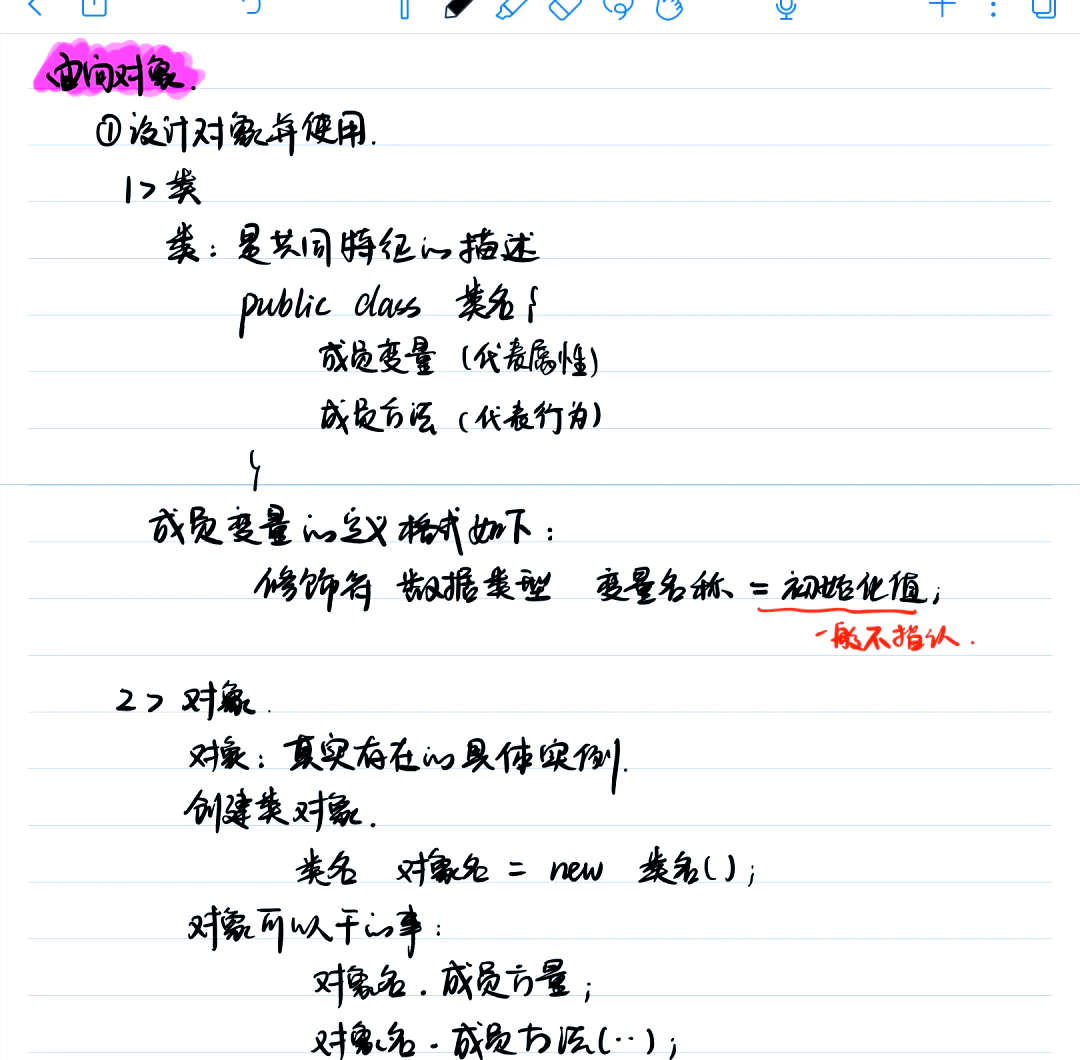 面向对象.
①设计对象并使用.
1> 类
类：是共同特征的描述
public class 类名{
成员变量 (代表属性)
成员方法 (代表行为)
}
成员变量的定义格式如下：
修饰符 数据类型 变量名称 = 初始化值;
一般不指认.
2> 对象.
对象：真实存在的具体实例.
创建类对象.
类名 对象名 = new 类名();
对象可以干的事：
对象名.成员方量;
对象名.成员方法(..);